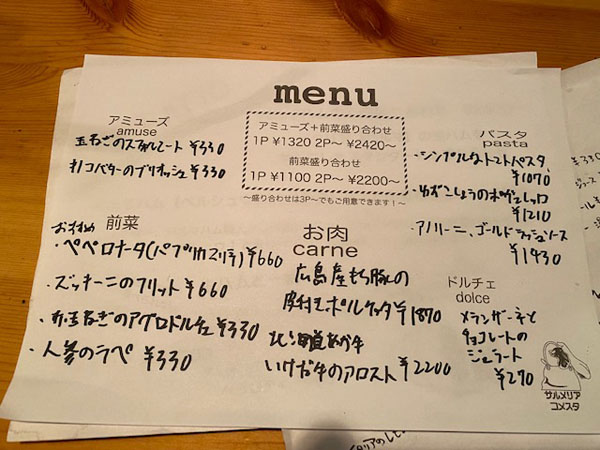 menu
アミューズ
amuse
玉ねぎのスフォルマート ¥330
キノコバターのブリオッシュ ¥330
アミューズ+前菜盛り合わせ
1P ¥1320 2P～ ¥2420～
前菜盛り合わせ
1P ¥1100 2P～ ¥2200～
～盛り合わせは3P～でもご用意できます!～
パスタ
pasta
・シンプルなトマトパスタ
¥1070
・ゆずこしょうのボンゴレ
¥1210
・アノリーニ、ゴールドラッシュソース
¥1430
おすすめ 前菜
・ペペロナータ(パプリカマリネ) ¥660
・ズッキーニのフリット ¥660
・赤玉ねぎのアグロドルチェ ¥330
・人参のラペ ¥330
お肉
carne
広島産もち豚の
皮付きポルケッタ ¥1870
北海道あか牛
いけだ牛のアロスト ¥2200
ドルチェ
dolce
メランザーネと
チョコレートの
ジェラート
¥270
サルメリア
コメスタ